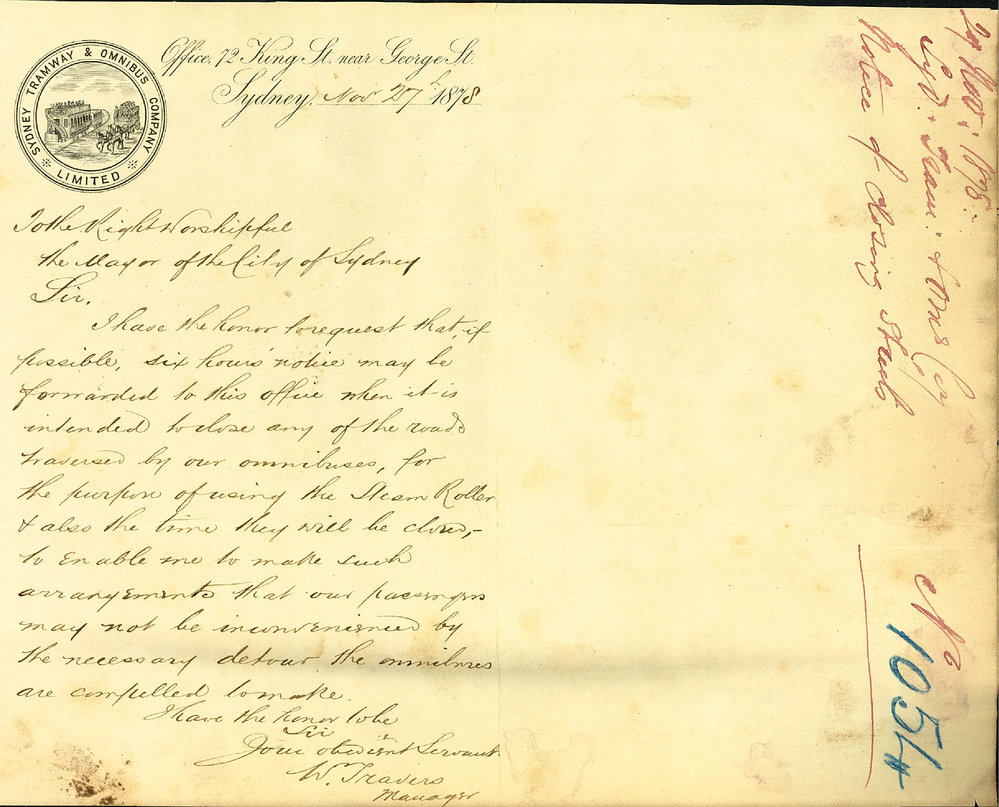 SYDNEY TRAMWAY & OMNIBUS COMPANY
LIMITED
Office, 72 King St. near George St.
Sydney, Nov 27th 1878
To the Right Worshipful
the Mayor of the City of Sydney
Sir,
I have the honor to request that, if
possible, six hours' notice may be
forwarded to this office when it is
intended to close any of the roads
traversed by our omnibuses, for
the purpose of using the Steam Roller
& also the time they will be closed,-
to enable me to make such
arrangements that our passengers
may not be inconvenienced by
the necessary detour the omnibuses
are compelled to make.
I have the honor to be
Sir
Your obedient Servant
W. Travers
Manager
Nov: 1878:
Syd. Tram. & Omb Coy
Notice of closing Streets
No
1054